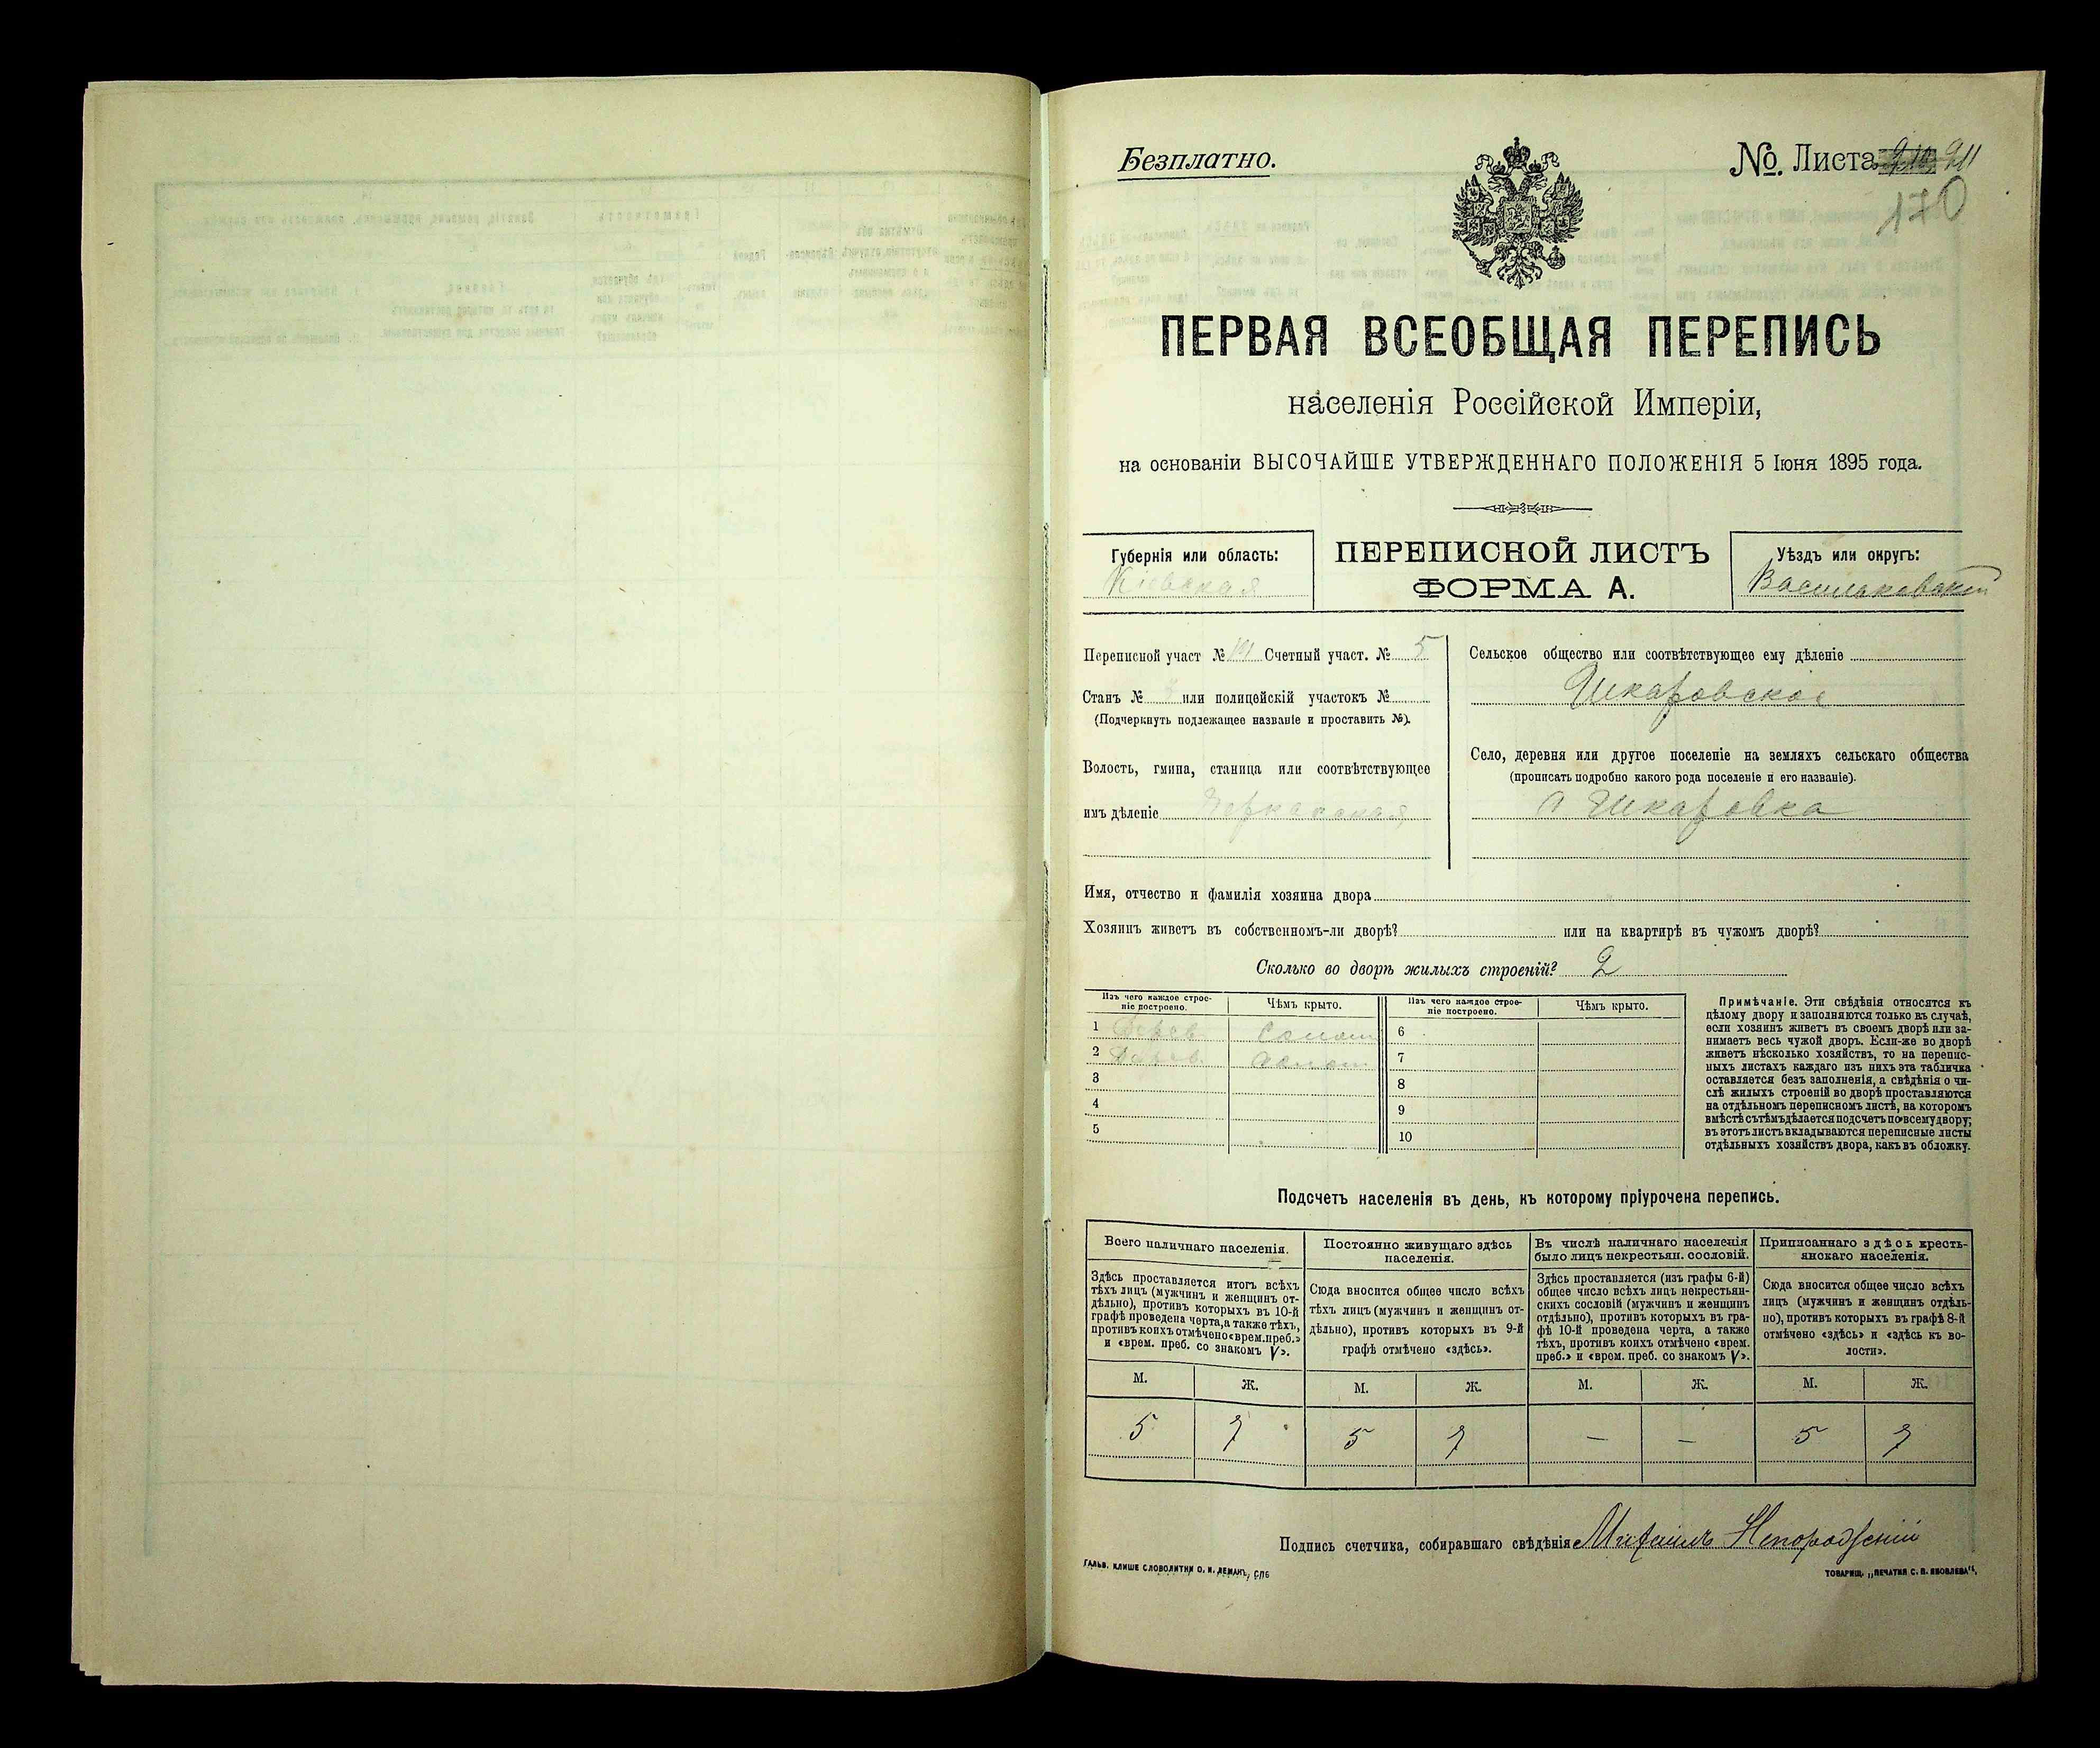 Безплатно.
№. Листа 211
170
ПЕРВАЯ ВСЕОБЩАЯ ПЕРЕПИСЬ
населенія Россійской Имперіи,
на основаніи ВЫСОЧАЙШЕ УТВЕРЖДЕННАГО ПОЛОЖЕНІЯ 5 Іюня 1895 года.
Губернія или область:
Кіевская
ПЕРЕПИСНОЙ ЛИСТЪ
ФОРМА А.
Уѣздъ или округъ:
Васильковскій
Переписной участ № Счетный участ. № 5
Станъ № или полицейскій участокъ №
(Подчеркнуть подлежащее названіе и проставить №).
Волость, гмина, станица или соотвѣтствующее
имъ дѣленіе Черкасская
Сельское общество или соотвѣтствующее ему дѣленіе
Шкаровское
Село, деревня или другое поселеніе на земляхъ сельскаго общества
(прописать подробно какого рода поселеніе и его названіе).
Шкаровка
Имя, отчество и фамилія хозяина двора
Хозяинъ живетъ въ собственномъ-ли дворѣ? или на квартирѣ въ чужомъ дворѣ?
Сколько во дворѣ жилыхъ строеній? 2
Изъ чего каждое строе-
ніе построено.
Чѣмъ крыто.
Изъ чего каждое строе-
ніе построено.
Чѣмъ крыто.
1 Дерев Солом
2 Дерев. Солом
3
4
5
6
7
8
9
10
Примѣчаніе. Эти свѣдѣнія относятся къ
цѣлому двору и заполняются только въ случаѣ,
если хозяинъ живетъ въ своемъ дворѣ или за-
нимаетъ весь чужой дворъ. Если-же во дворѣ
живетъ нѣсколько хозяйствъ, то на перепис-
ныхъ листахъ каждаго изъ нихъ эта табличка
оставляется безъ заполненія, а свѣдѣнія о чи-
слѣ жилыхъ строеній во дворѣ проставляются
на отдѣльномъ переписномъ листѣ, на которомъ
вмѣстѣ съ тѣмъ дѣлается подсчетъ по всему двору;
въ этотъ листъ вкладываются переписные листы
отдѣльныхъ хозяйствъ двора, какъ въ обложку.
Подсчетъ населенія въ день, къ которому пріурочена перепись.
Всего наличнаго населенія.
Здѣсь проставляется итогъ всѣхъ
тѣхъ лицъ (мужчинъ и женщинъ от-
дѣльно), противъ которыхъ въ 10-й
графѣ проведена черта, а также тѣхъ,
противъ коихъ отмѣчено «врем. преб.»
и «врем. преб. со знакомъ V».
Постоянно живущаго здѣсь
населенія.
Сюда вносится общее число всѣхъ
тѣхъ лицъ (мужчинъ и женщинъ от-
дѣльно), противъ которыхъ въ 9-й
графѣ отмѣчено «здѣсь».
Въ числѣ наличнаго населенія
было лицъ некрестьян. сословій.
Здѣсь проставляется (изъ графы 6-й)
общее число всѣхъ лицъ некрестьян-
скихъ сословій (мужчинъ и женщинъ
отдѣльно), противъ которыхъ въ гра-
фѣ 10-й проведена черта, а также
тѣхъ, противъ коихъ отмѣчено «врем.
преб.» и «врем. преб. со знакомъ V».
Приписаннаго здѣсь кресть-
янскаго населенія.
Сюда вносится общее число всѣхъ
лицъ (мужчинъ и женщинъ отдѣль-
но), противъ которыхъ въ графѣ 8-й
отмѣчено «здѣсь» и «здѣсь къ во-
лости».
М. Ж. М. Ж. М. Ж. М. Ж.
5 7 5 7 — — 5 7
Подпись счетчика, собиравшаго свѣдѣнія Михаилъ
ГАЛЬВ. КЛИШЕ СЛОВОЛИТНИ О. И. ЛЕМАНЪ, СПБ
ТОВАРИЩ. „ПЕЧАТНЯ С. П. ЯКОВЛЕВА“.